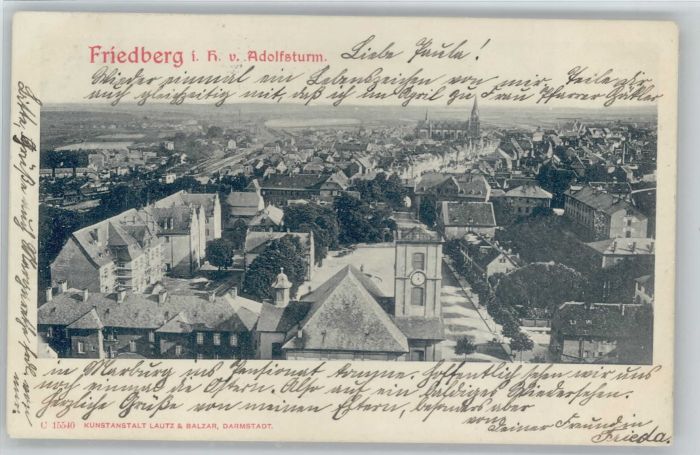 Friedberg i. H. v. Adolfsturm.
Liebe Paula!
Wieder einmal ein Lebenszeichen von mir. Teile dir
auch gleichzeitig mit, daß ich im April zu Frau Pfarrer
in Marburg ins Pensionat komme. Hoffentlich sehen wir uns
noch einmal die Ostern. Also auf ein baldiges Wiedersehen.
Herzliche Grüße von meinen Eltern, besonders aber
von
Deiner Freundin
Frieda.
C 15540 KUNSTANSTALT LAUTZ & BALZAR, DARMSTADT.